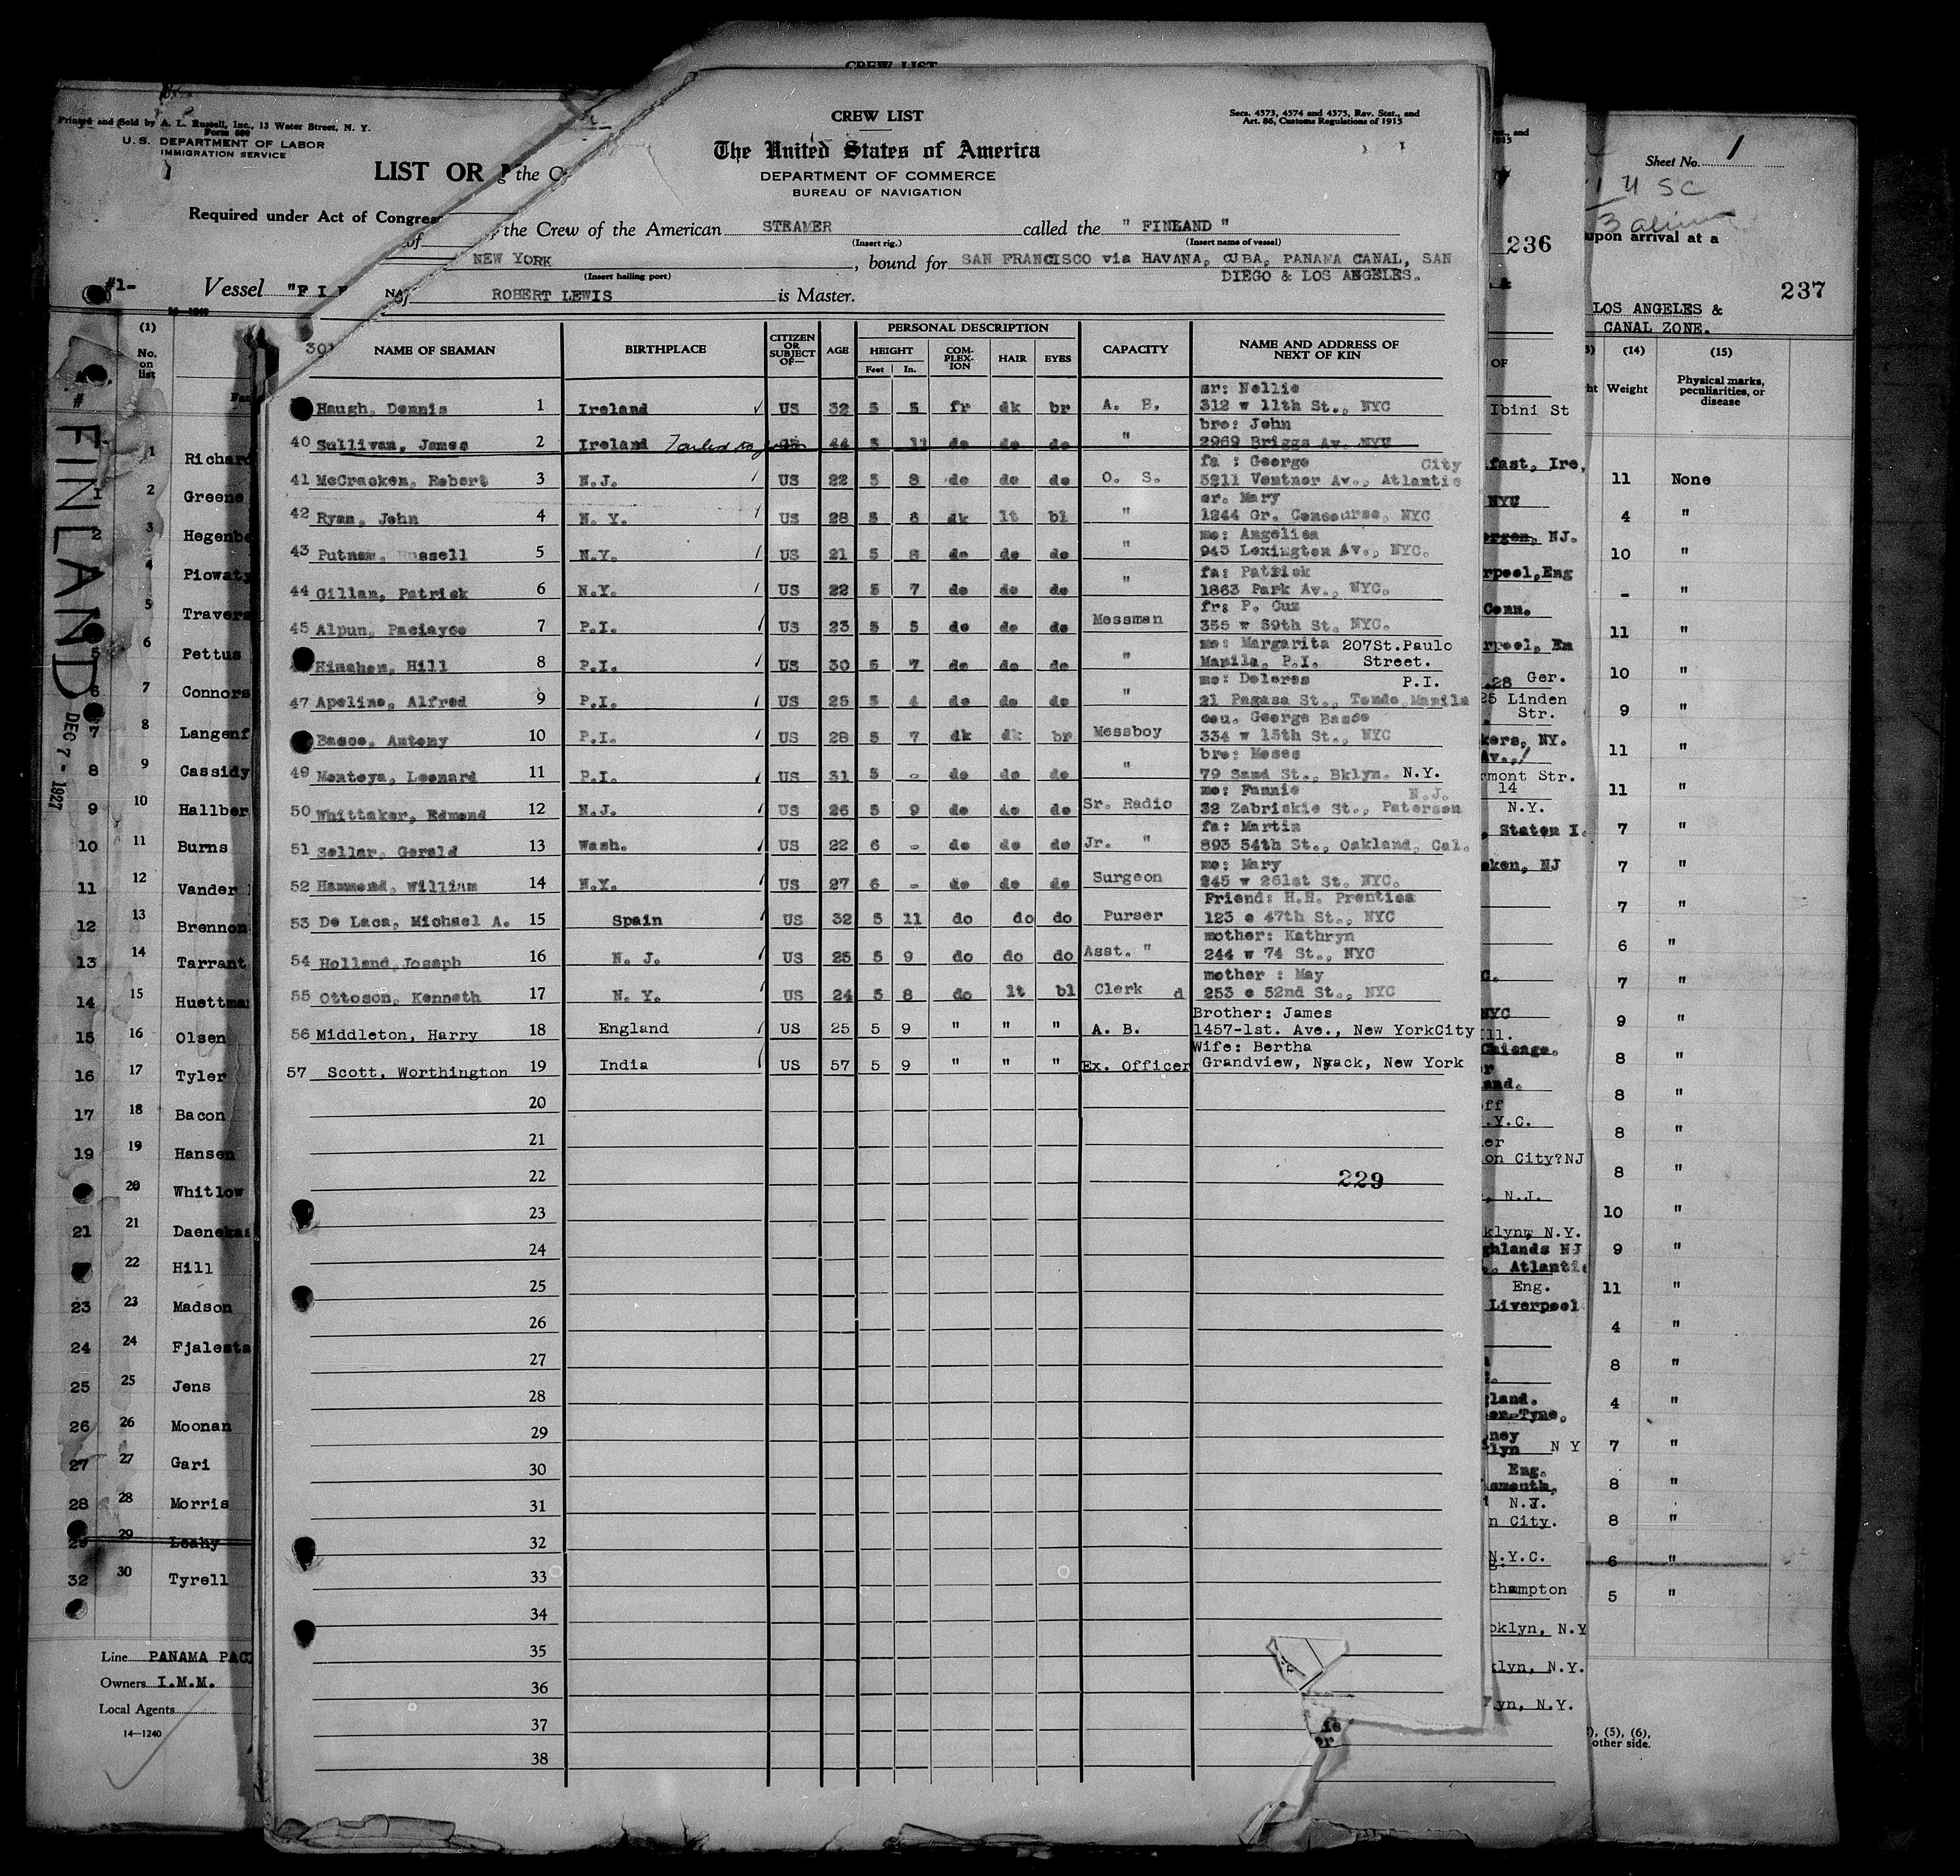 CREW LIST
Printed and Sold by A. L. Russell, Inc., 13 Water Street, N. Y.
Form 689
U. S. DEPARTMENT OF LABOR
IMMIGRATION SERVICE
LIST OR
the C
Required under Act of Congress
of
Vessel "FI
#1-
CREW LIST
Secs. 4573, 4574 and 4575, Rev. Stat., and
Art. 86, Customs Regulations of 1915
The United States of America
DEPARTMENT OF COMMERCE
BUREAU OF NAVIGATION
the Crew of the American STEAMER called the " FINLAND "
(Insert rig.) (Insert name of vessel)
NEW YORK, bound for SAN FRANCISCO via HAVANA, CUBA, PANAMA CANAL, SAN
(Insert hailing port) DIEGO & LOS ANGELES.
of ROBERT LEWIS is Master.
NAME OF SEAMAN BIRTHPLACE CITIZEN OR SUBJECT OF— AGE PERSONAL DESCRIPTION CAPACITY NAME AND ADDRESS OF NEXT OF KIN
HEIGHT COM-PLEX-ION HAIR EYES
Feet In.
sr: Nellie
Haugh, Dennis 1 Ireland ✓ US 32 5 5 fr dk br A. B. 312 w 11th St., NYC
bro: John
40 Sullivan, James 2 Ireland Failed to join US 44 5 11 do do do " 2969 Briggs Av. NYC
fa : George City
41 McCracken, Robert 3 N.J. US 22 5 8 do do do O. S. 3211 Ventnor Av., Atlantic
sr. Mary
42 Ryan, John 4 N. Y. US 28 5 8 dk lt bl " 1244 Gr. Concourse, NYC
mo: Angelica
43 Putnam, Russell 5 N.Y. US 21 5 8 do do do " 943 Lexington Av., NYC.
fa: Patrick
44 Gillan, Patrick 6 N.Y. US 22 5 7 do do do " 1863 Park Av., NYC.
fr: P. Cuz
45 Alpun, Paciayco 7 P.I. US 23 5 5 do do do Messman 355 w 59th St. NYC.
mo: Margarita 207St.Paulo
Kinahem, Hill 8 P.I. US 30 5 7 do do do " Manila, P.I. Street.
mo: Dolores P.I.
47 Apoline, Alfred 9 P.I. US 25 5 4 do do do " 21 Pagasa St., Tondo, Manila
cou. George Basco
Basco, Antony 10 P.I. US 28 5 7 dk dk br Messboy 334 w 15th St., NYC
bro: Moses
49 Monteya, Leonard 11 P.I. US 31 5 - do do do " 79 Sand St., Bklyn. N.Y.
mo: Fannie N.J.
50 Whittaker, Edmond 12 N.J. US 26 5 9 do do do Sr. Radio 32 Zabriskie St., Paterson
fa: Martin
51 Sellar, Gerald 13 Wash. US 22 6 - do do do Jr. " 893 54th St., Oakland, Cal.
mo: Mary
52 Hammond, William 14 N.Y. US 27 6 - do do do Surgeon 245 w 261st St. NYC.
Friend: H.H. Prentiss
53 De Laca, Michael A. 15 Spain US 32 5 11 do do do Purser 123 e 47th St., NYC
mother: Kathryn
54 Holland,Joseph 16 N. J. US 25 5 9 do do do Asst. " 244 w 74 St., NYC
mother : May
55 Ottoson, Kenneth 17 N. Y. US 24 5 8 do lt bl Clerk d 253 e 52nd St., NYC
Brother: James
56 Middleton, Harry 18 England US 25 5 9 " " " A. B. 1457-1st. Ave., New YorkCity
Wife: Bertha
57 Scott, Worthington 19 India US 57 5 9 " " " Ex. Officer Grandview, Nyack, New York
20
21
22 229
23
24
25
26
27
28
29
30
31
32
33
34
35
36
37
38
FINLAND
DEC 7 - 1927
(1)
No. on list
1 Richard
2 Greene
3 Hegenbe
4 Piowaty
5 Travers
6 Pettus
7 Connors
8 Langenf
8 9 Cassidy
9 10 Hallber
10 11 Burns
11 12 Vander
12 13 Brennon
13 14 Tarrant
14 15 Huettma
15 16 Olsen
16 17 Tyler
17 18 Bacon
19 19 Hansen
20 Whitlow
21 21 Daenekas
22 Hill
23 23 Madson
24 24 Fjalesta
25 25 Jens
26 26 Moonan
27 27 Gari
28 28 Morris
29 29 Leahy
32 30 Tyrell
Line PANAMA PAC
Owners I.M.M.
Local Agents
14—1240
236
OF
Ibini St
fast, Ire,
NYC
ergen, NJ.
rpool,Eng
Conn.
rpool, En
28 Ger.
25 Linden
Str.
kers, NY.
Av.,
rmont Str.
14
N.Y.
, Staten I.
oken, NJ
NYC
Ill.
Chicago.
and.
off
.Y.C.
er
on City?NJ
, N.J.
klyn, N.Y.
ghlands NJ
., Atlantic
Eng.
Liverpool
gland.
on-Tyne,
ney
klyn N Y
Eng.
N.Y.
n City.
N.Y.C.
thampton
oklyn, N.Y
klyn, N.Y.
yn, N.Y.
Sheet No. 1
upon arrival at a
237
LOS ANGELES &
CANAL ZONE.
(14) (15)
Weight Physical marks, peculiarities, or disease
11 None
4 "
10 "
- "
11 "
10 "
9 "
11 "
11 "
7 "
7 "
7 "
6 "
7 "
9 "
8 "
8 "
8 "
8 "
10 "
9 "
11 "
4 "
8 "
4 "
7 "
8 "
8 "
6 "
5 "
, (5), (6),
other side.